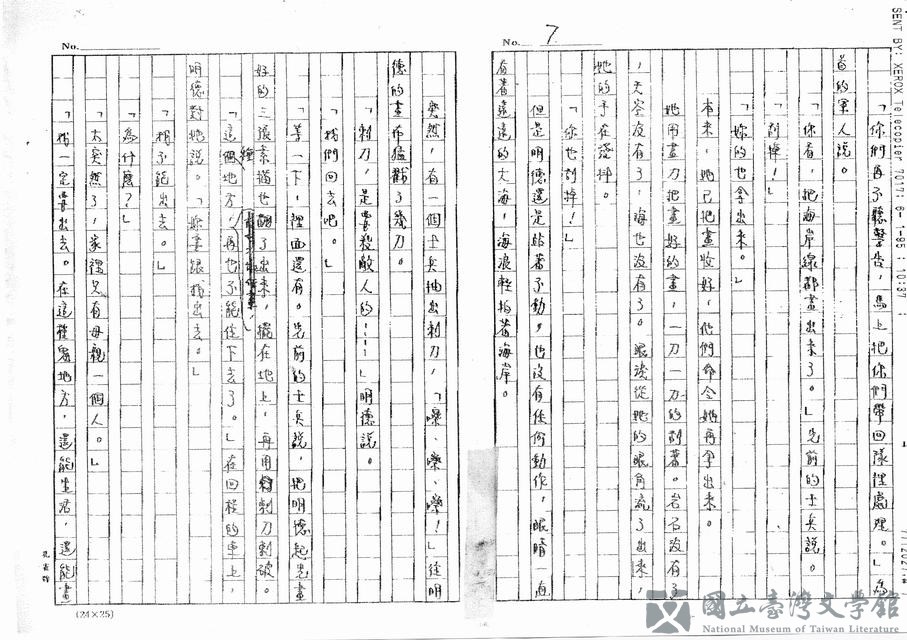 SENT BY: XEROX Telecopier 7017; 6- 1-95 ; 10:37 ;
No. 7
「你們再不聽警告，馬上把你們帶回隊裡處理。」為
首的軍人說。
「你看，把海岸線都畫出來了。」先前的士兵說。
「刮掉！」
「妳的也拿出來。」
本來，她已把畫收好，他們命令她再拿出來。
她用畫刀把畫好的畫，一刀一刀的刮著。岩石沒有了
，天空沒有了，海也沒有了。眼淚從她的眼角流了出來，
她的手在發抖。
「你也刮掉！」
但是明德還是站著不動，也沒有任何動作，眼睛一直
看著遠遠的大海，海浪輕拍著海岸。
No.
突然，有一個士兵抽出刺刀，「嚓、嚓、嚓！」從明
德的畫布猛戳了幾刀。
「刺刀，是要殺敵人的……」明德說。
「我們回去吧。」
「等一下，裡面還有。」先前的士兵說，把明德起先畫
好的三張素描也翻了出來，擺在地上，再用刺刀刺破。
「這個地方，再也不能住下去了。」在回程的車上，
明德對她說。「妳要跟我出去。」
「我不能出去。」
「為什麼？」
「太突然了，家裡只有母親一個人。」
「我一定要出去。在這種鬼地方，還能生活，還能畫
(24×25)
國立臺灣文學館
National Museum of Taiwan Literature